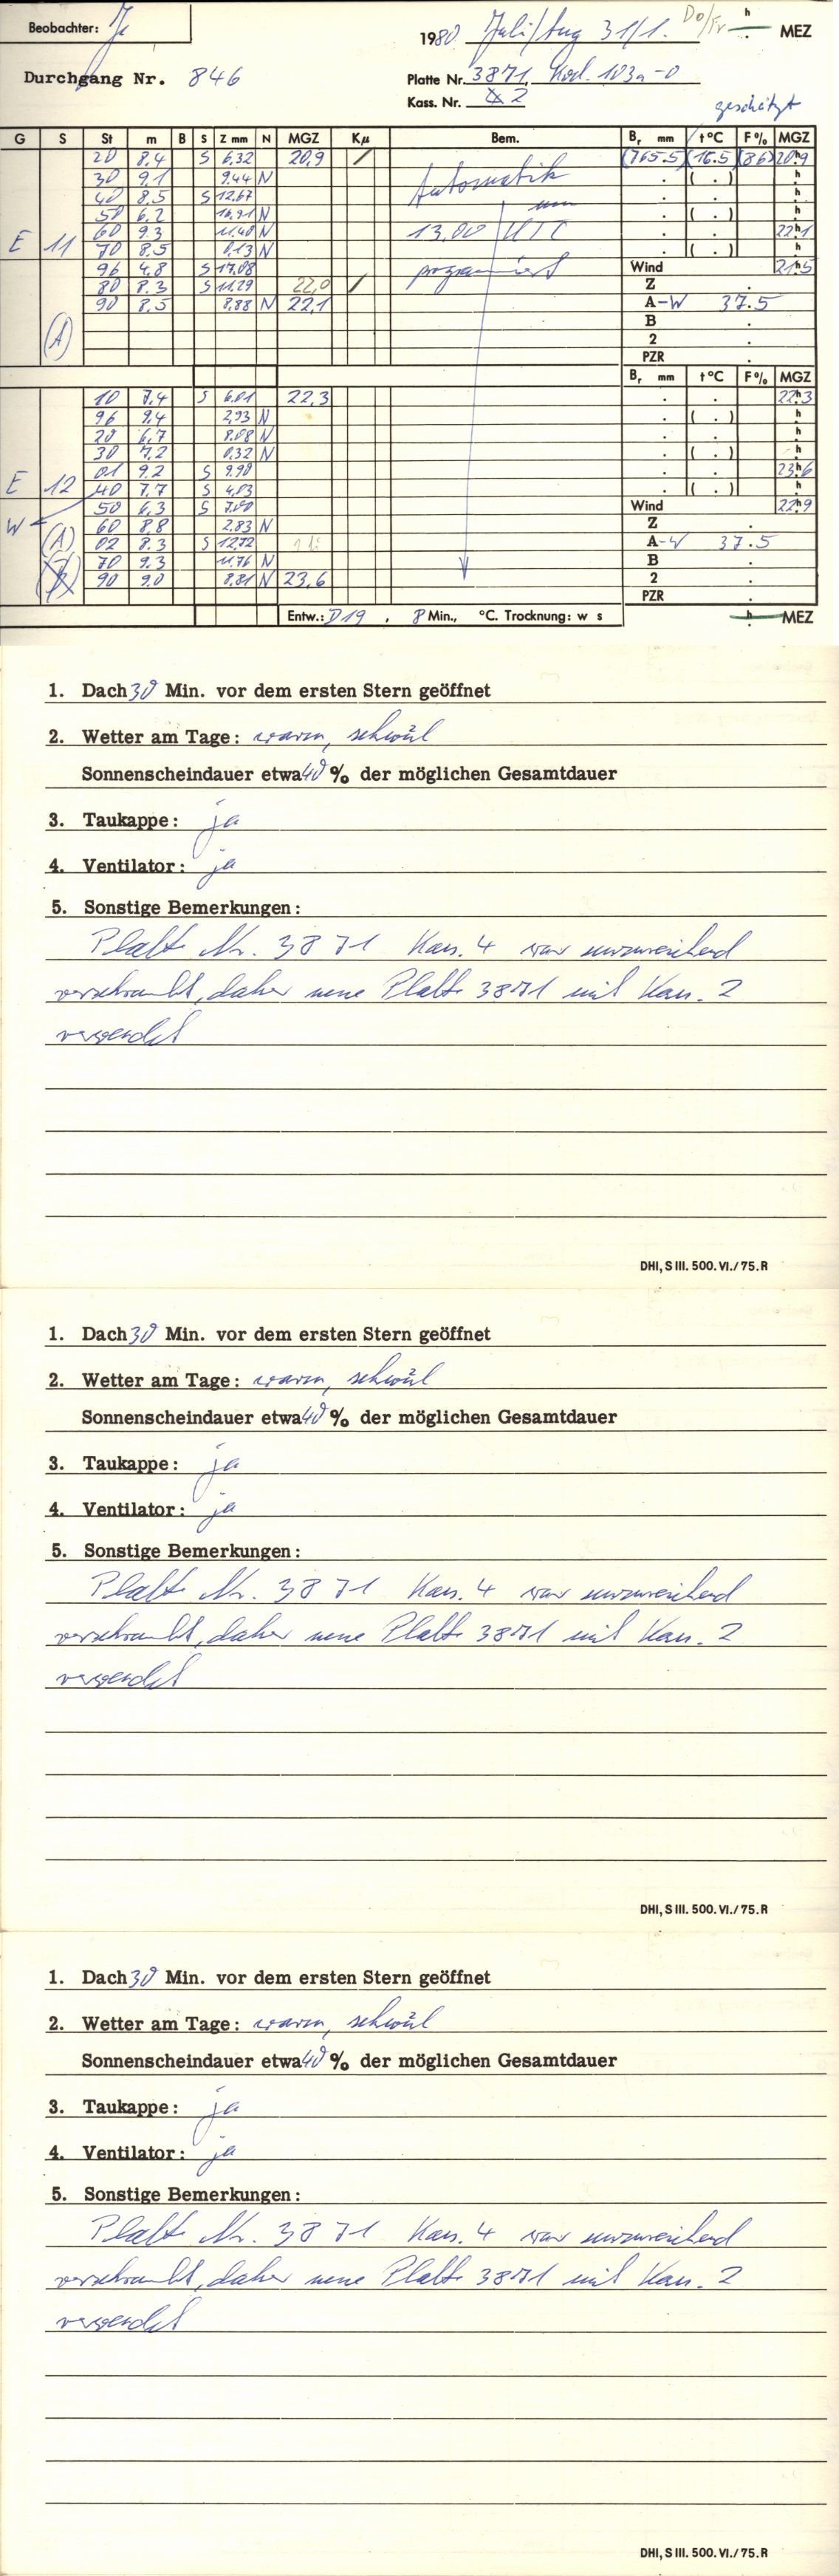 Beobachter: Je
1980 Juli/Aug 31/1. Do/Fr h MEZ
Durchgang Nr. 846
Platte Nr. 3871, Kod. 103a-0
Kass. Nr. 4 2
geschätzt
G S St m B S Z mm N MGZ Kμ Bem. Br mm t°C F% MGZ
20 8.4 S 6,32 20,9 / (765.5) (16.5) (86) 20h9
30 9.1 9.44 N Automatik . ( . ) h
40 8.5 S 12.67 . . h
50 6.2 N um . ( . ) h
60 9.3 11,40 N 13.00 UTC . . 22h1
E 11 70 8.5 N . ( . ) h
96 4.8 S 17,08 Wind 21h5
80 8.3 S 11,29 22,0 / Z .
90 8.5 8,88 N 22,1 A-W 37.5
(A) B .
2 .
PZR .
Br mm t°C F% MGZ
10 7.4 S 6.01 22,3 . . 22h3
96 9.4 2,93 N . ( . ) h
20 6,7 8.08 N . . h
30 7.2 0,32 N . ( . ) h
01 9.2 S 9.90 . . 23h6
E 12 40 7.7 S 4,03 . ( . ) h
50 6.3 S 7.00 Wind 22h9
W 60 8.8 2.83 N Z .
(A) 02 8.3 S 12,72 A-W 37.5
70 9.3 11,76 N B .
90 9.0 8,81 N 23,6 2 .
PZR .
Entw.: D19 , 8 Min., °C. Trocknung: w s h MEZ
1. Dach 30 Min. vor dem ersten Stern geöffnet
2. Wetter am Tage: warm, schwül
Sonnenscheindauer etwa 40 % der möglichen Gesamtdauer
3. Taukappe: ja
4. Ventilator: ja
5. Sonstige Bemerkungen:
Platte Nr. 3871 Kass. 4 war unzureichend
verschraubt, daher neue Platte 3871 mit Kass. 2
verwendet
DHI, S III. 500. VI./75. R
1. Dach 30 Min. vor dem ersten Stern geöffnet
2. Wetter am Tage: warm, schwül
Sonnenscheindauer etwa 40 % der möglichen Gesamtdauer
3. Taukappe: ja
4. Ventilator: ja
5. Sonstige Bemerkungen:
Platte Nr. 3871 Kass. 4 war unzureichend
verschraubt, daher neue Platte 3871 mit Kass. 2
verwendet
DHI, S III. 500. VI./75. R
1. Dach 30 Min. vor dem ersten Stern geöffnet
2. Wetter am Tage: warm, schwül
Sonnenscheindauer etwa 40 % der möglichen Gesamtdauer
3. Taukappe: ja
4. Ventilator: ja
5. Sonstige Bemerkungen:
Platte Nr. 3871 Kass. 4 war unzureichend
verschraubt, daher neue Platte 3871 mit Kass. 2
verwendet
DHI, S III. 500. VI./75. R